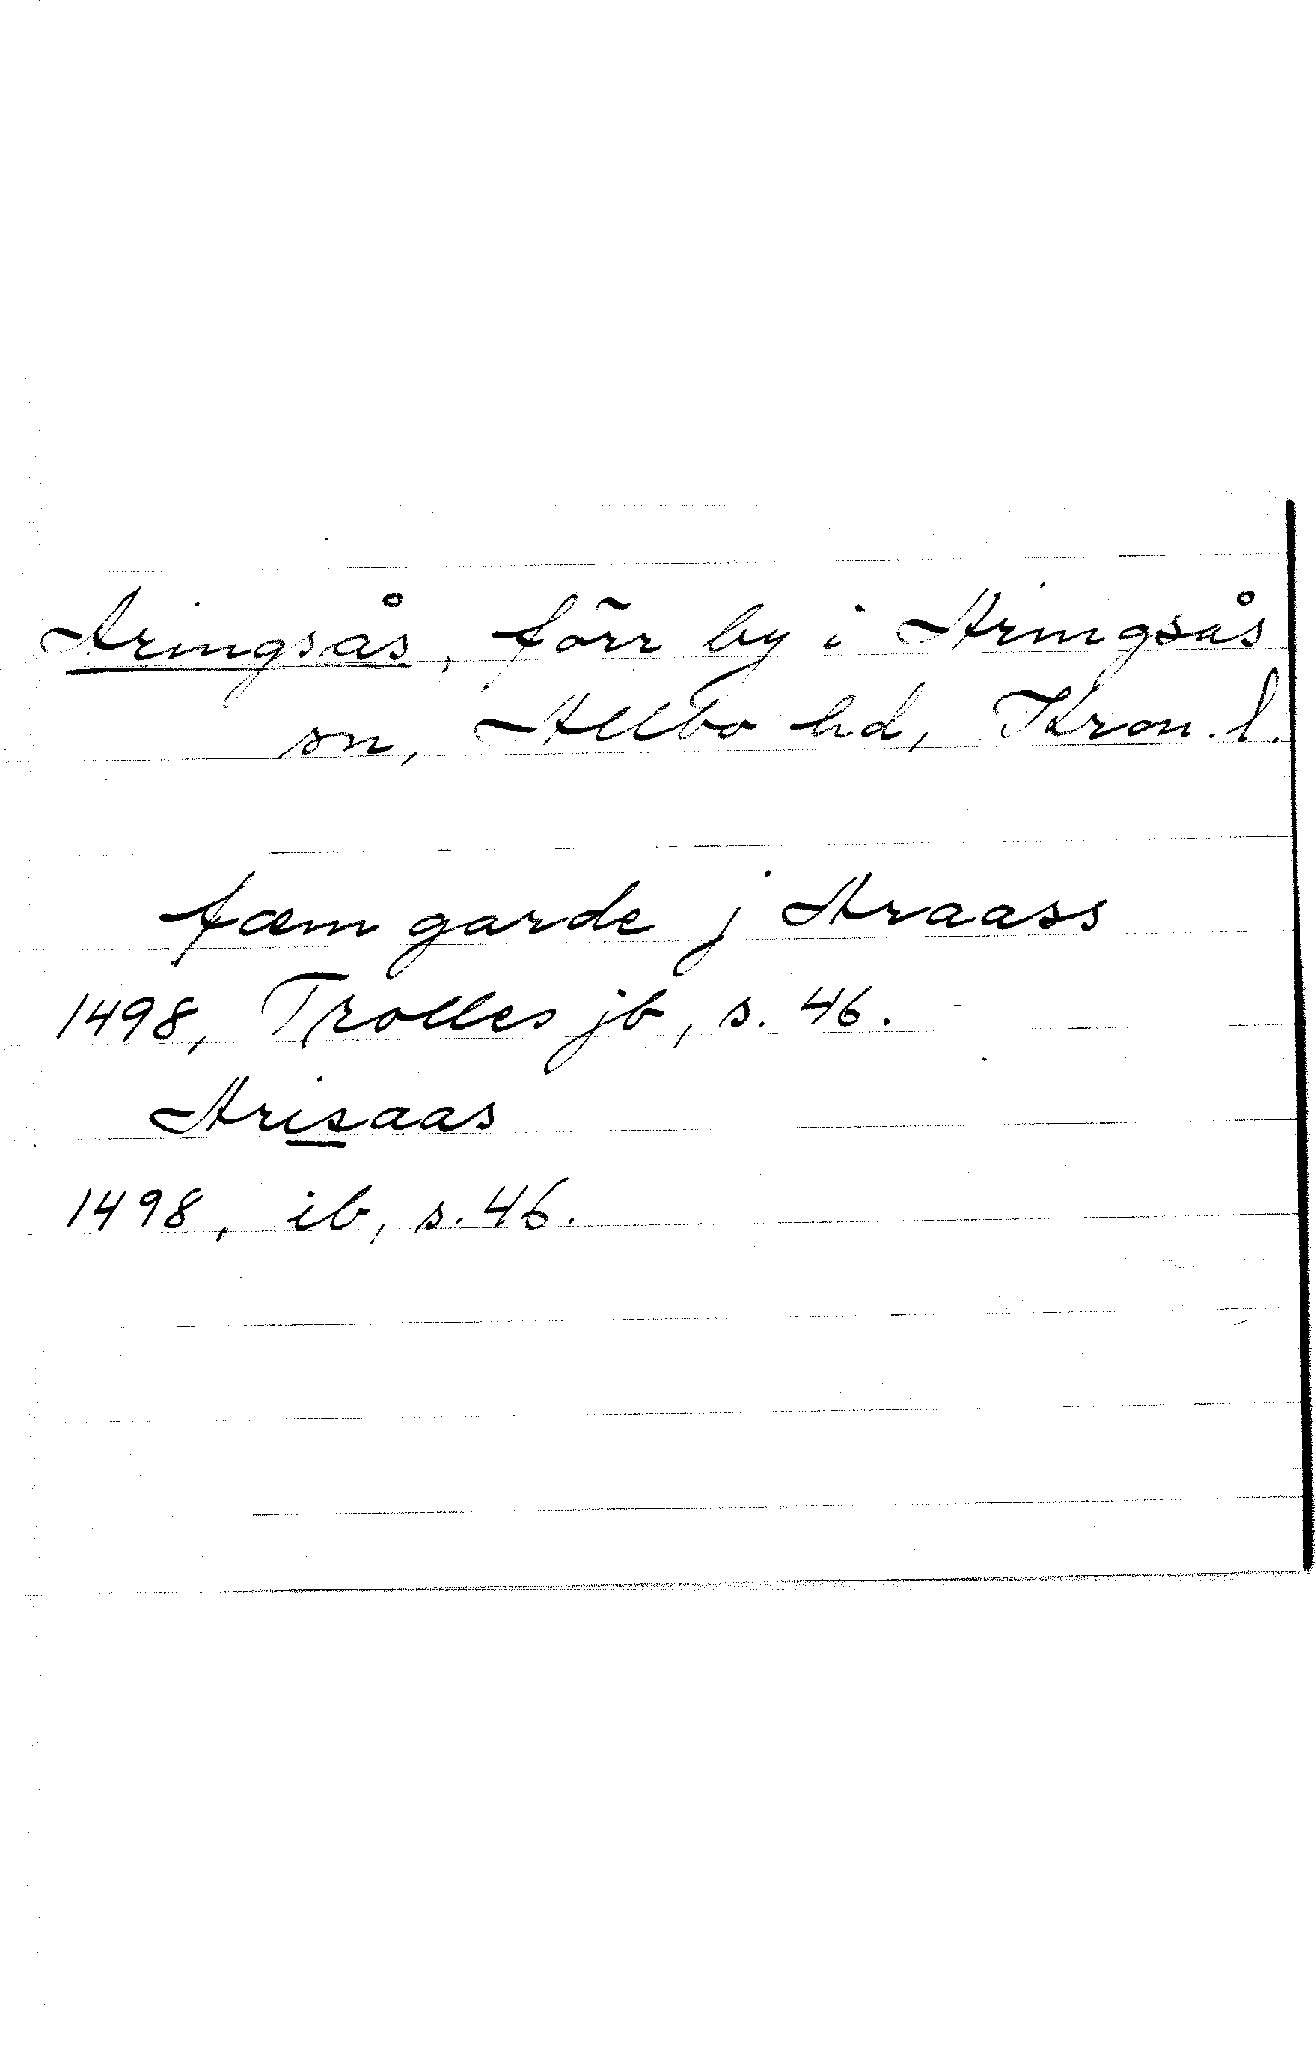 Aringsås, förr by i Aringsås
sn, Allbo hd, Kron. l.
fæm garde j Araass
1498, Trolles jb, s. 46.
Arisaas
1498, ib, s. 46.